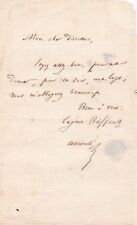 Mon cher Directeur,
Soyez assez bon, pour me
donner, pour ce soir, une loge,
vous m'obligerez beaucoup.
Bien à vous.
Eugène